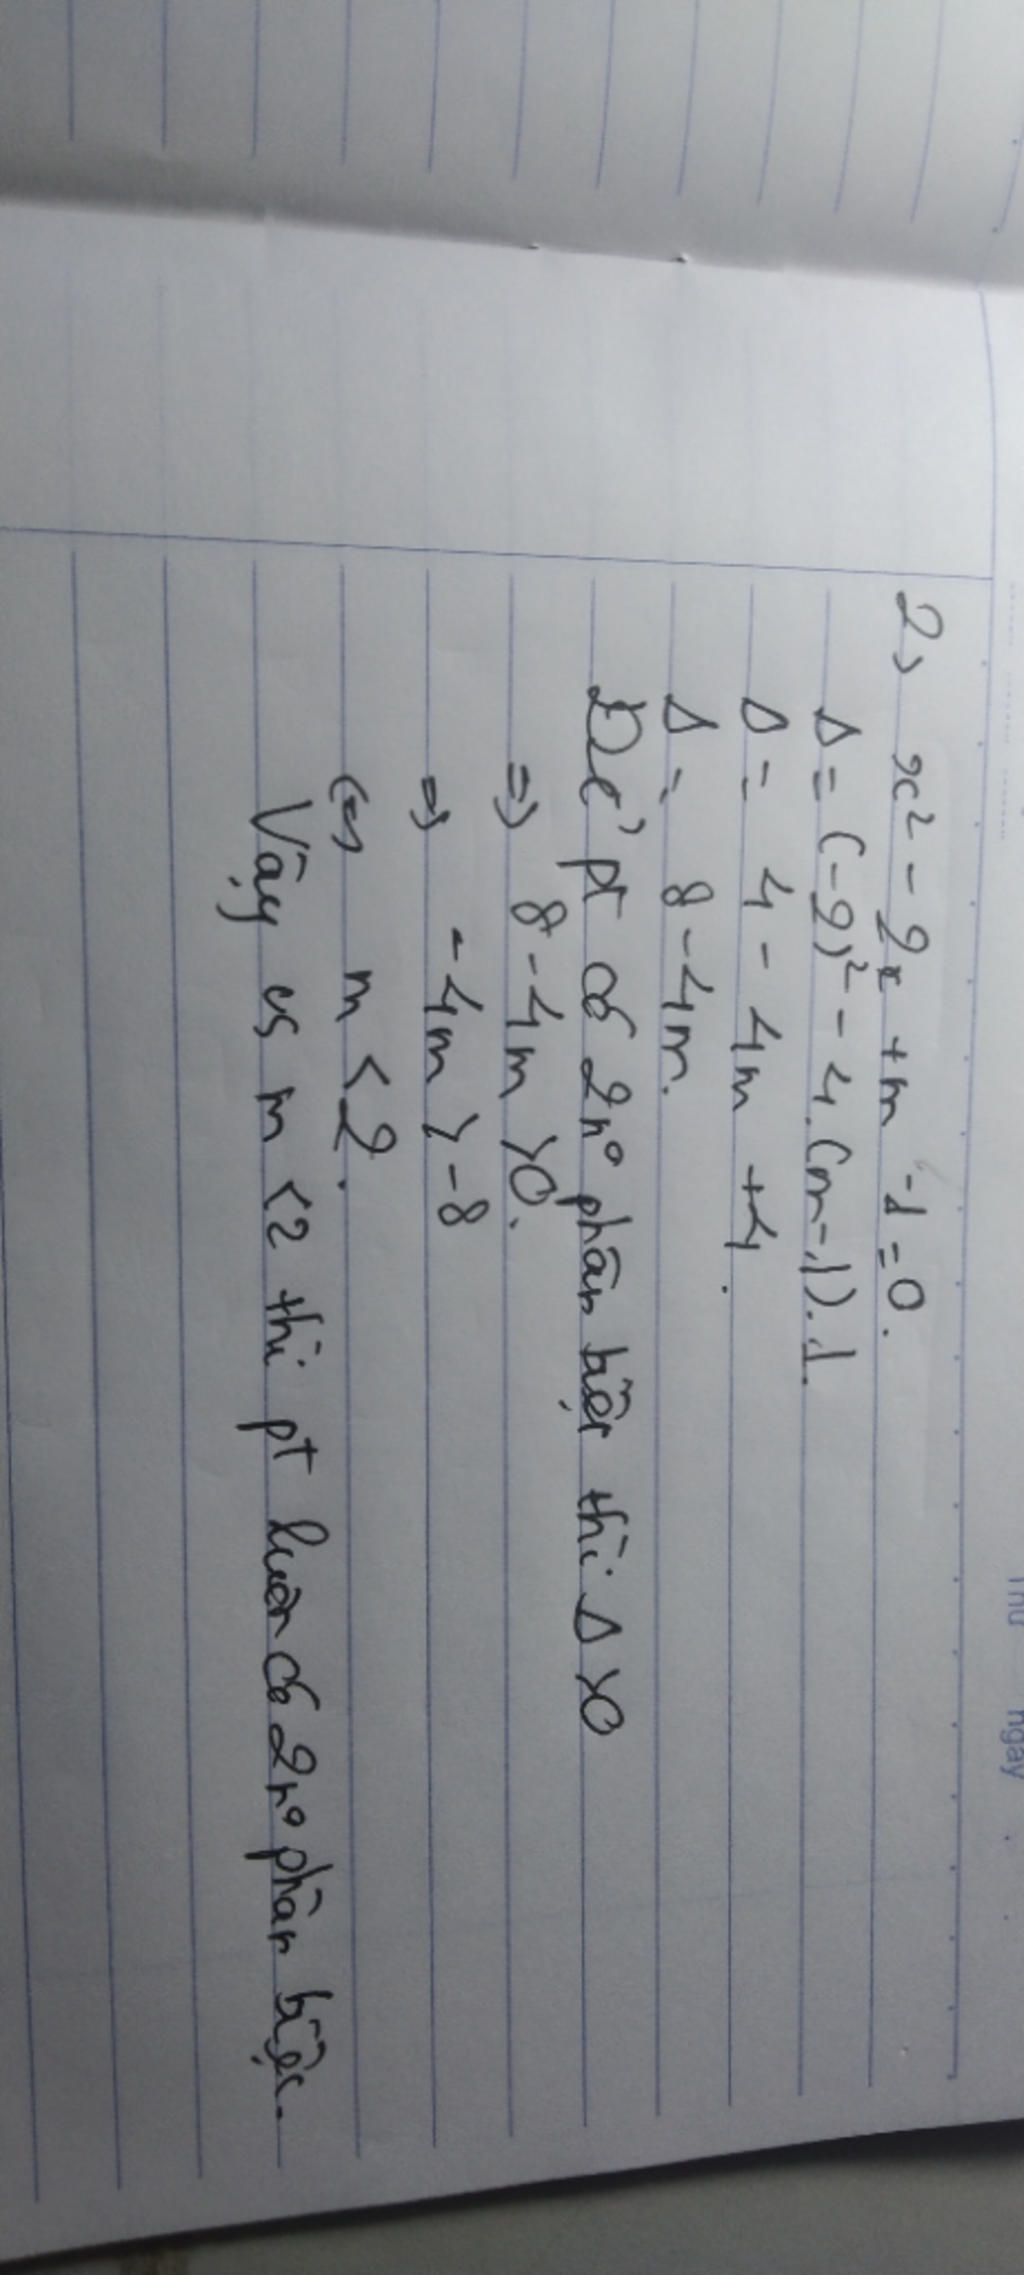 Thứ ngày
2, x² - 2x + m - 1 = 0.
Δ = (-2)² - 4.(m-1).1.
Δ = 4 - 4m + 4.
Δ = 8 - 4m.
Để pt có 2n⁰ phân biệt thì Δ > 0
=> 8 - 4m > 0.
=> -4m > -8
<=> m < 2.
Vậy vs m < 2 thì pt luôn có 2n⁰ phân biệt.